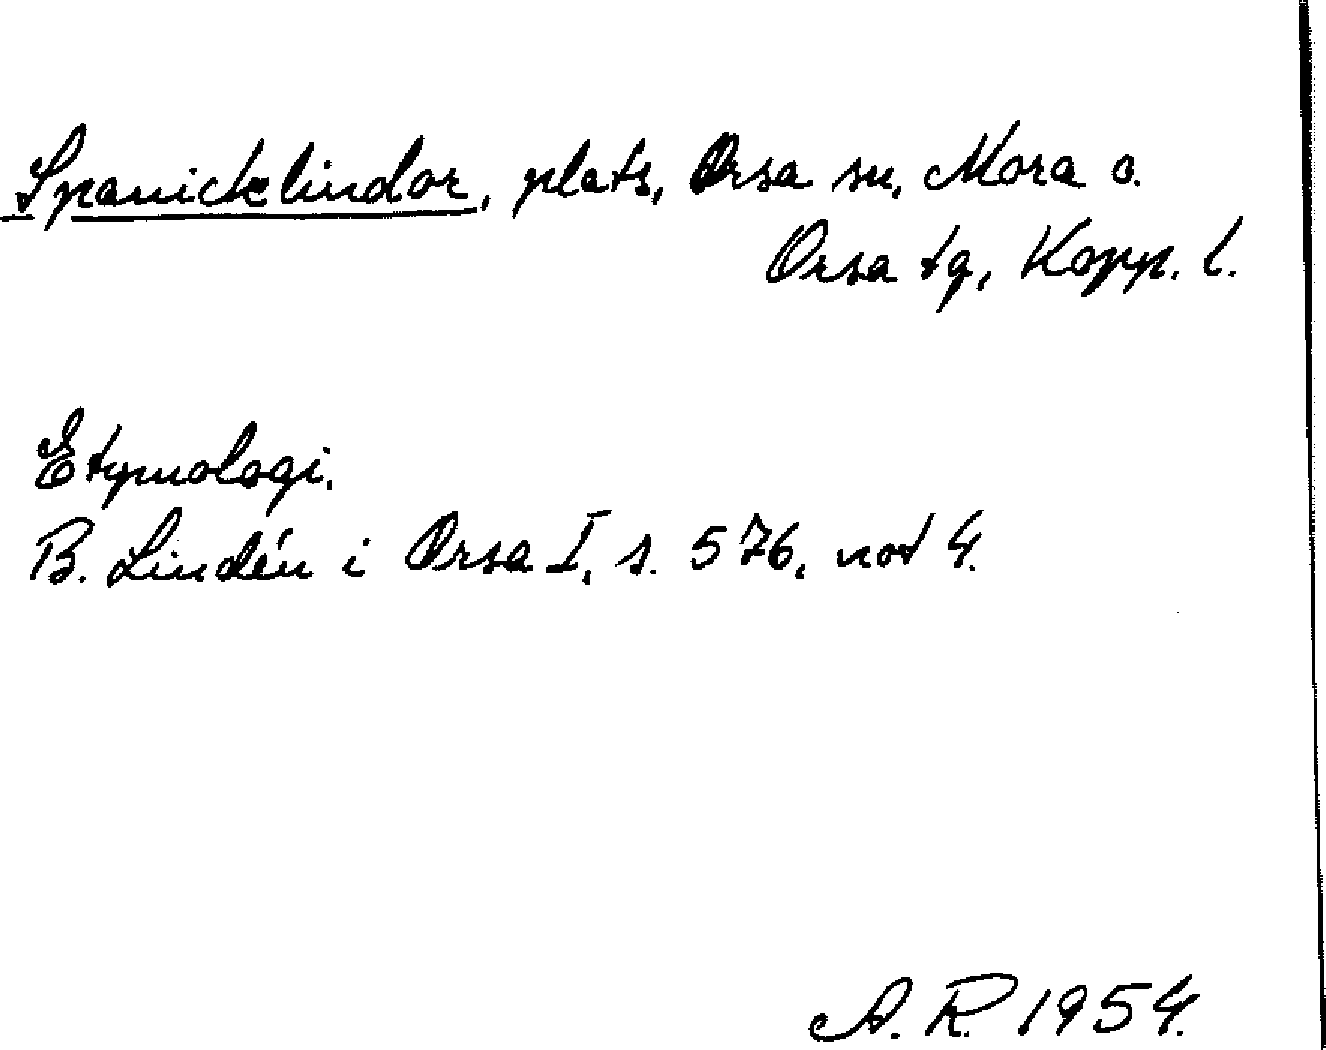 Spanicklindor, plats, Orsa sn, Mora o.
Orsa tg, Kopp. l.
Etymologi.
B. Lindén i Orsa I, s. 576, not 4.
A. R. 1954.